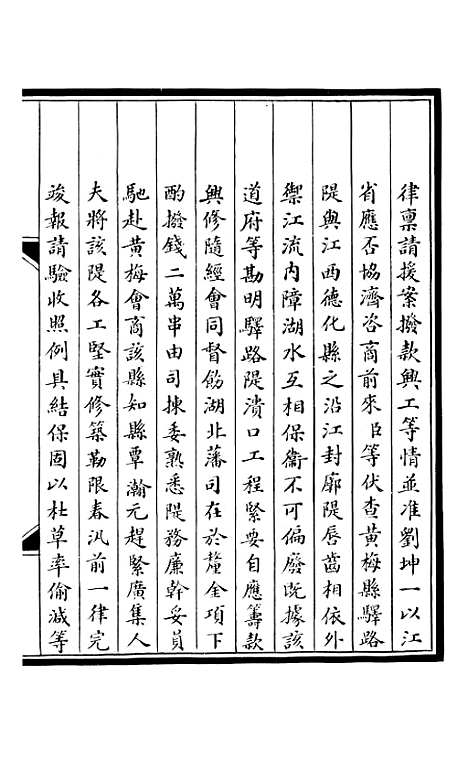 律稟請援案撥款興工等情並准劉坤一以江
省應否協濟咨商前來臣等伏查黃梅縣驛路
隄與江西德化縣之沿江封廓隄唇齒相依外
禦江流內障湖水互相保衞不可偏廢旣據該
道府等勘明驛路隄潰口工程緊要自應籌款
興修隨經會同督飭湖北藩司在於釐金項下
酌撥錢二萬串由司揀委熟悉隄務廉幹妥員
馳赴黃梅會商該縣知縣覃瀚元趕緊廣集人
夫將該隄各工堅實修築勒限春汛前一律完
竣報請驗收照例具結保固以杜草率偷減等